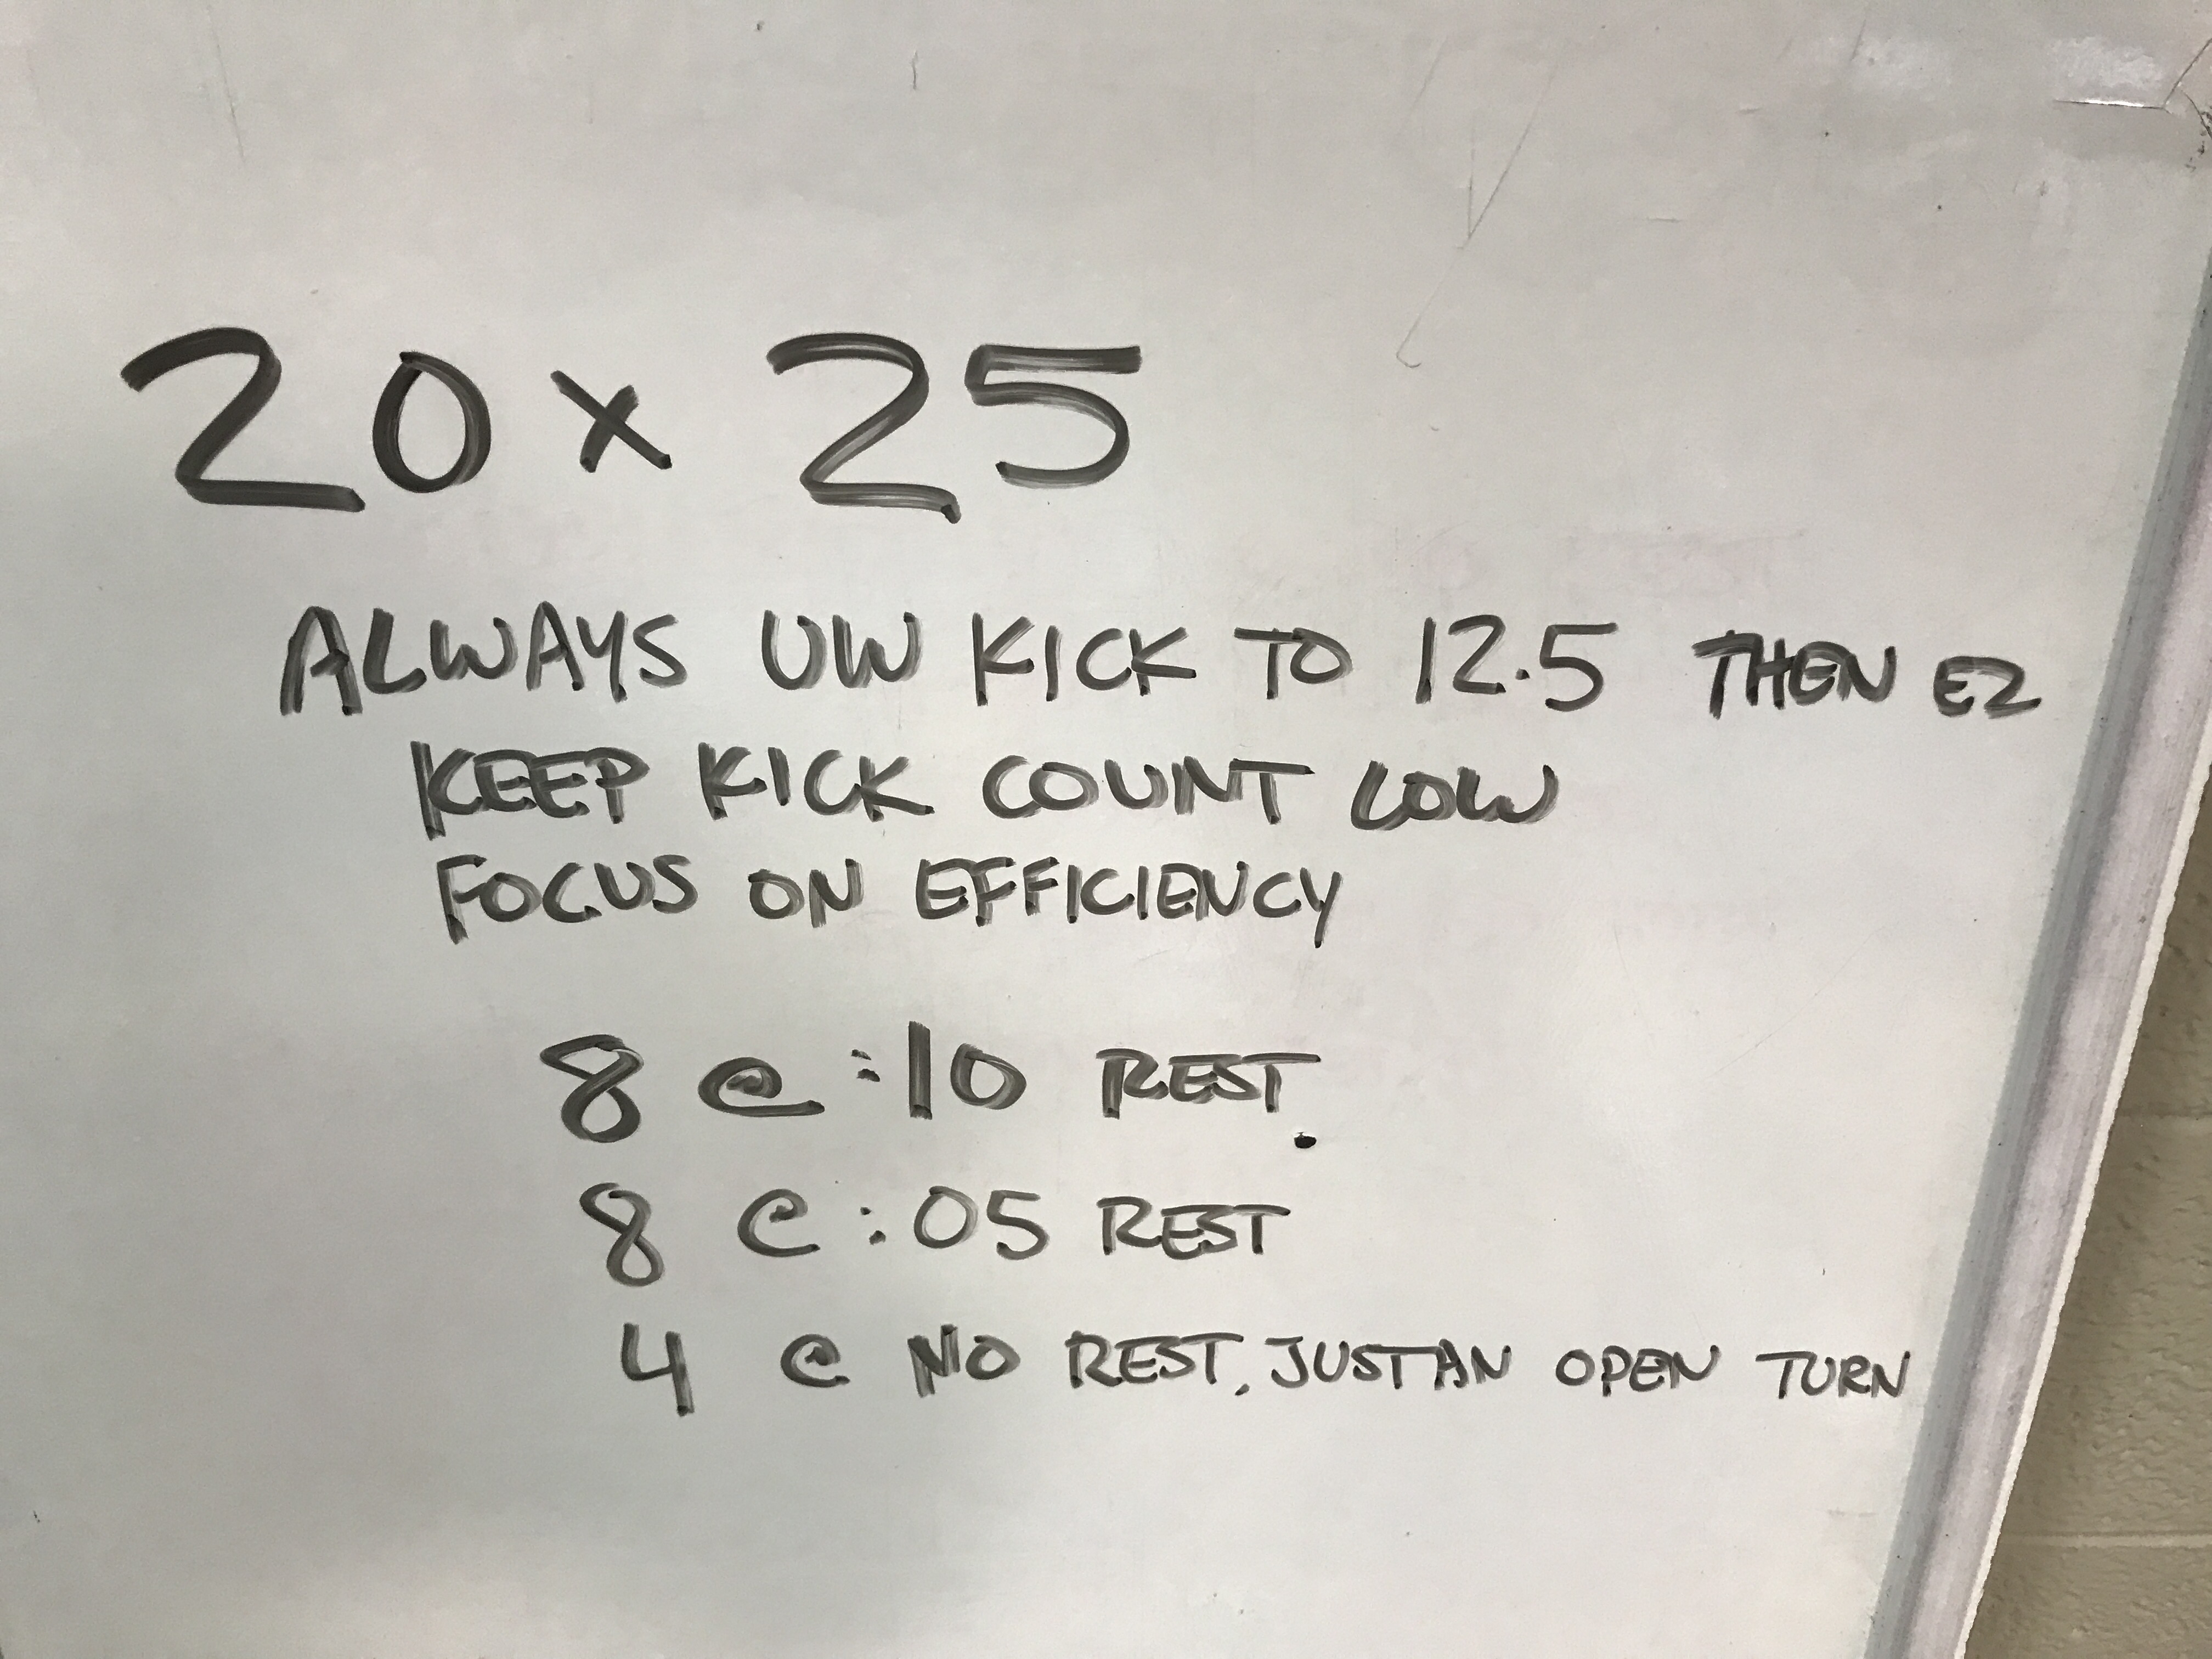 20 x 25
ALWAYS UW KICK TO 12.5 THEN EZ
KEEP KICK COUNT LOW
FOCUS ON EFFICIENCY
8 @ :10 REST.
8 @ :05 REST
4 @ NO REST, JUST AN OPEN TURN